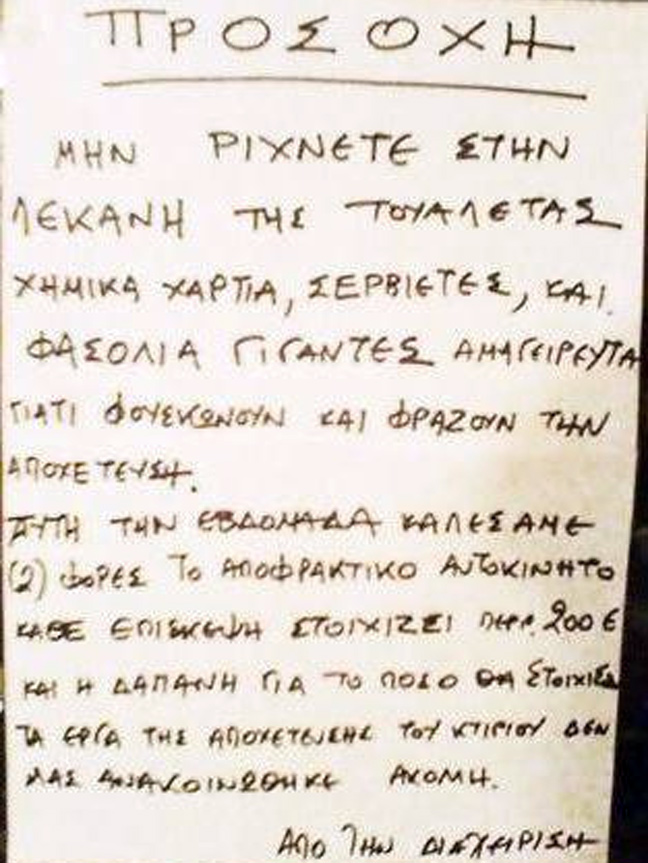 ΠΡΟΣΟΧΗ
ΜΗΝ ΡΙΧΝΕΤΕ ΣΤΗΝ
ΛΕΚΑΝΗ ΤΗΣ ΤΟΥΑΛΕΤΑΣ
ΧΗΜΙΚΑ ΧΑΡΤΙΑ, ΣΕΡΒΙΕΤΕΣ, ΚΑΙ
ΦΑΣΟΛΙΑ ΓΙΓΑΝΤΕΣ ΑΜΑΓΕΙΡΕΥΤΑ
ΓΙΑΤΙ ΦΟΥΣΚΩΝΟΥΝ ΚΑΙ ΦΡΑΖΟΥΝ ΤΗΝ
ΑΠΟΧΕΤΕΥΣΗ.
ΑΥΤΗ ΤΗΝ ΕΒΔΟΜΑΔΑ ΚΑΛΕΣΑΜΕ
(2) ΦΟΡΕΣ ΤΟ ΑΠΟΦΡΑΚΤΙΚΟ ΑΥΤΟΚΙΝΗΤΟ
ΚΑΘΕ ΕΠΙΣΚΕΨΗ ΣΤΟΙΧΙΖΕΙ ΠΕΡΡ. 200 €
ΚΑΙ Η ΔΑΠΑΝΗ ΓΙΑ ΤΟ ΠΟΣΟ ΘΑ ΣΤΟΙΧΙΣΟΥΝ
ΤΑ ΕΡΓΑ ΤΗΣ ΑΠΟΧΕΤΕΥΣΗΣ ΤΟΥ ΚΤΙΡΙΟΥ ΔΕΝ
ΜΑΣ ΑΝΑΚΟΙΝΩΘΗΚΕ ΑΚΟΜΗ.
ΑΠΟ ΤΗΝ ΔΙΑΧΕΙΡΙΣΗ